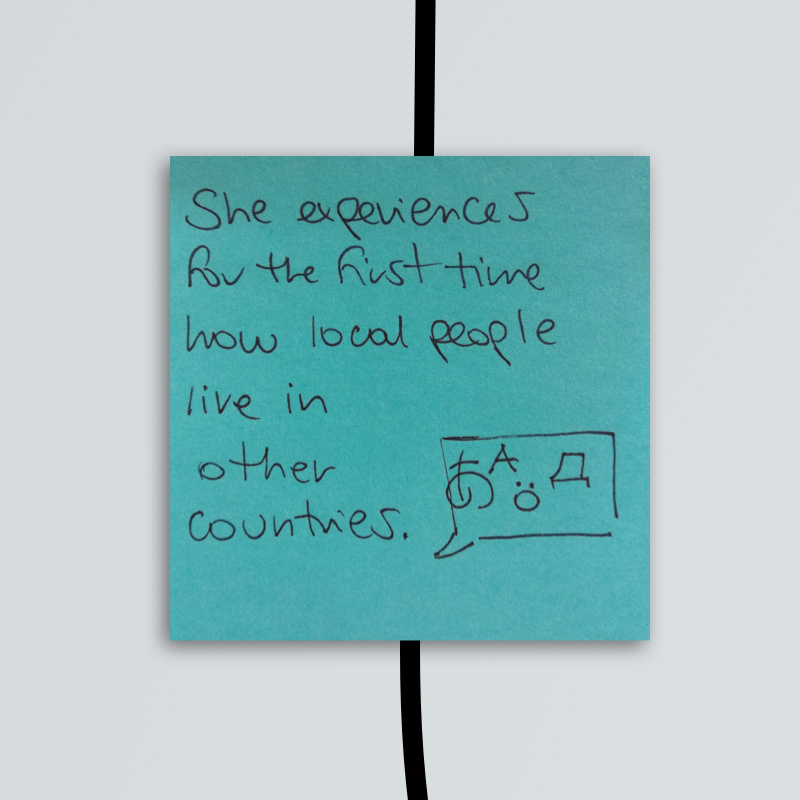 She experiences
for the first time
how local people
live in
other
countries.
あ A ö Д